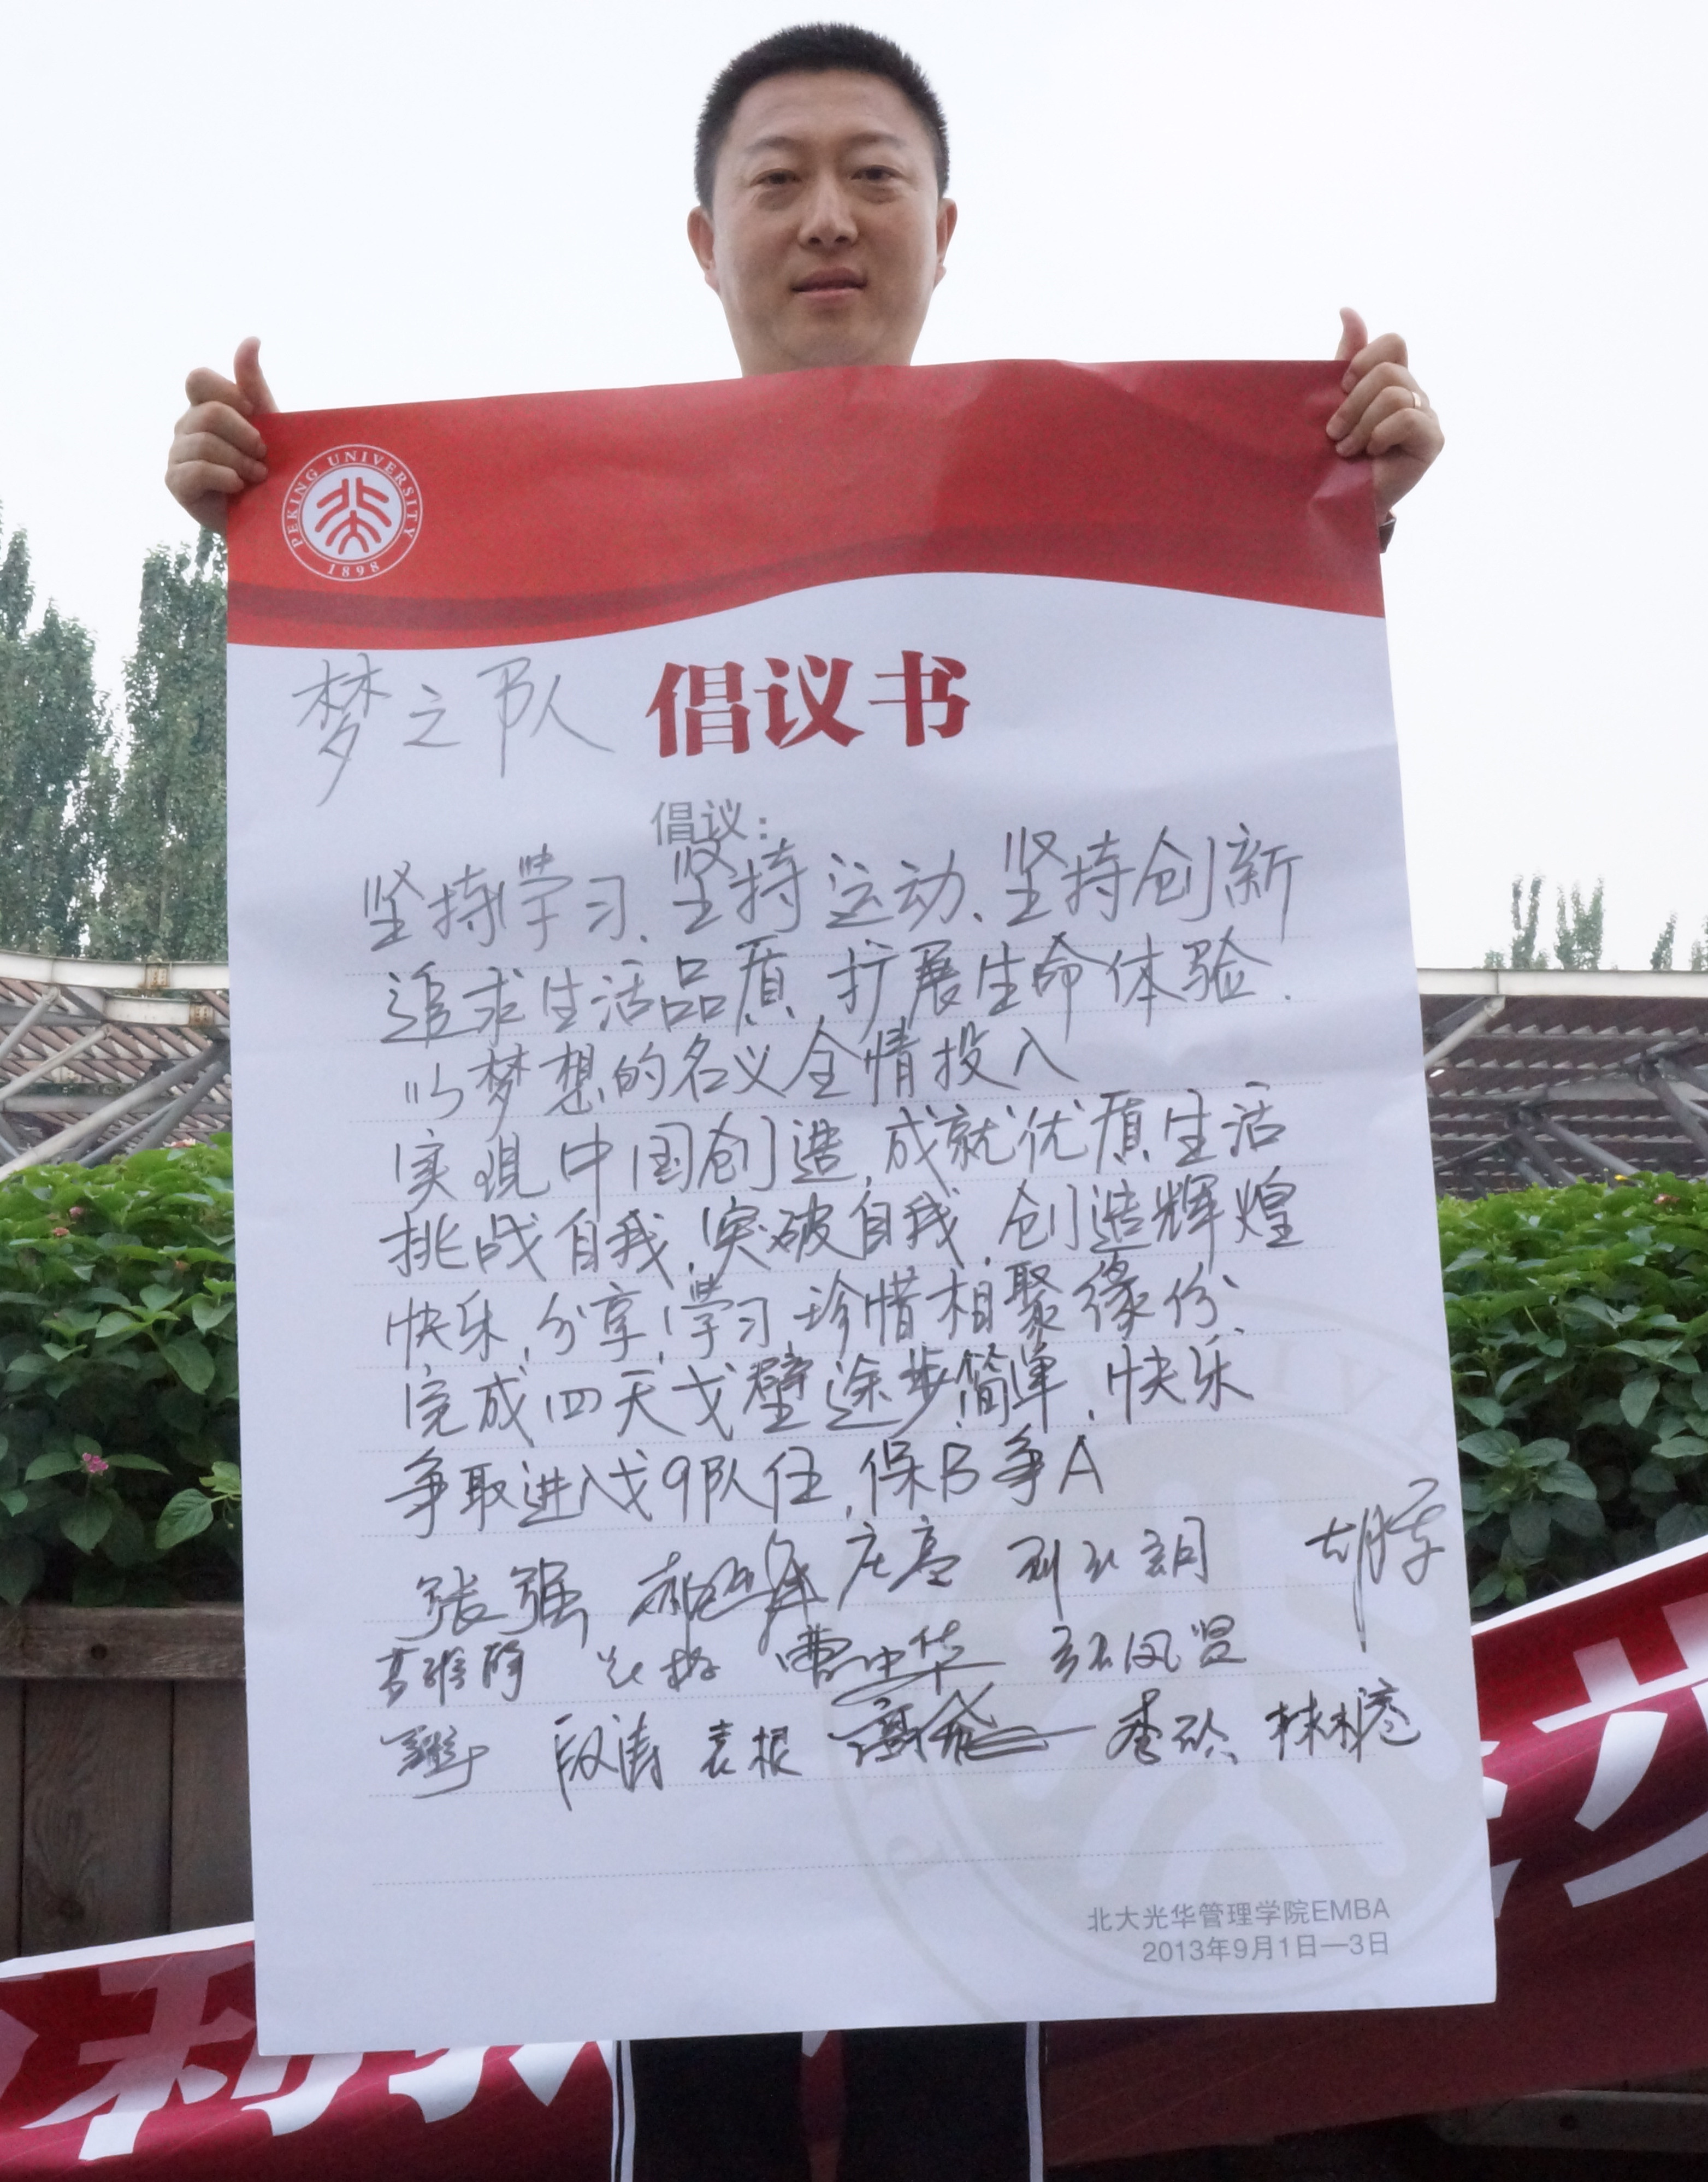 PEKING UNIVERSITY
1898
梦之队 倡议书
倡议：
坚持学习、坚持运动、坚持创新
追求生活品质，扩展生命体验、
以梦想的名义全情投入
实现中国创造，成就优质生活
挑战自我，突破自我，创造辉煌
快乐，分享，学习，珍惜相聚缘份、
完成四天戈壁途步，简单，快乐
争取进入戈9队伍，保B争A
张强 庄亮
曹中华
段涛 袁根
北大光华管理学院EMBA
2013年9月1日—3日